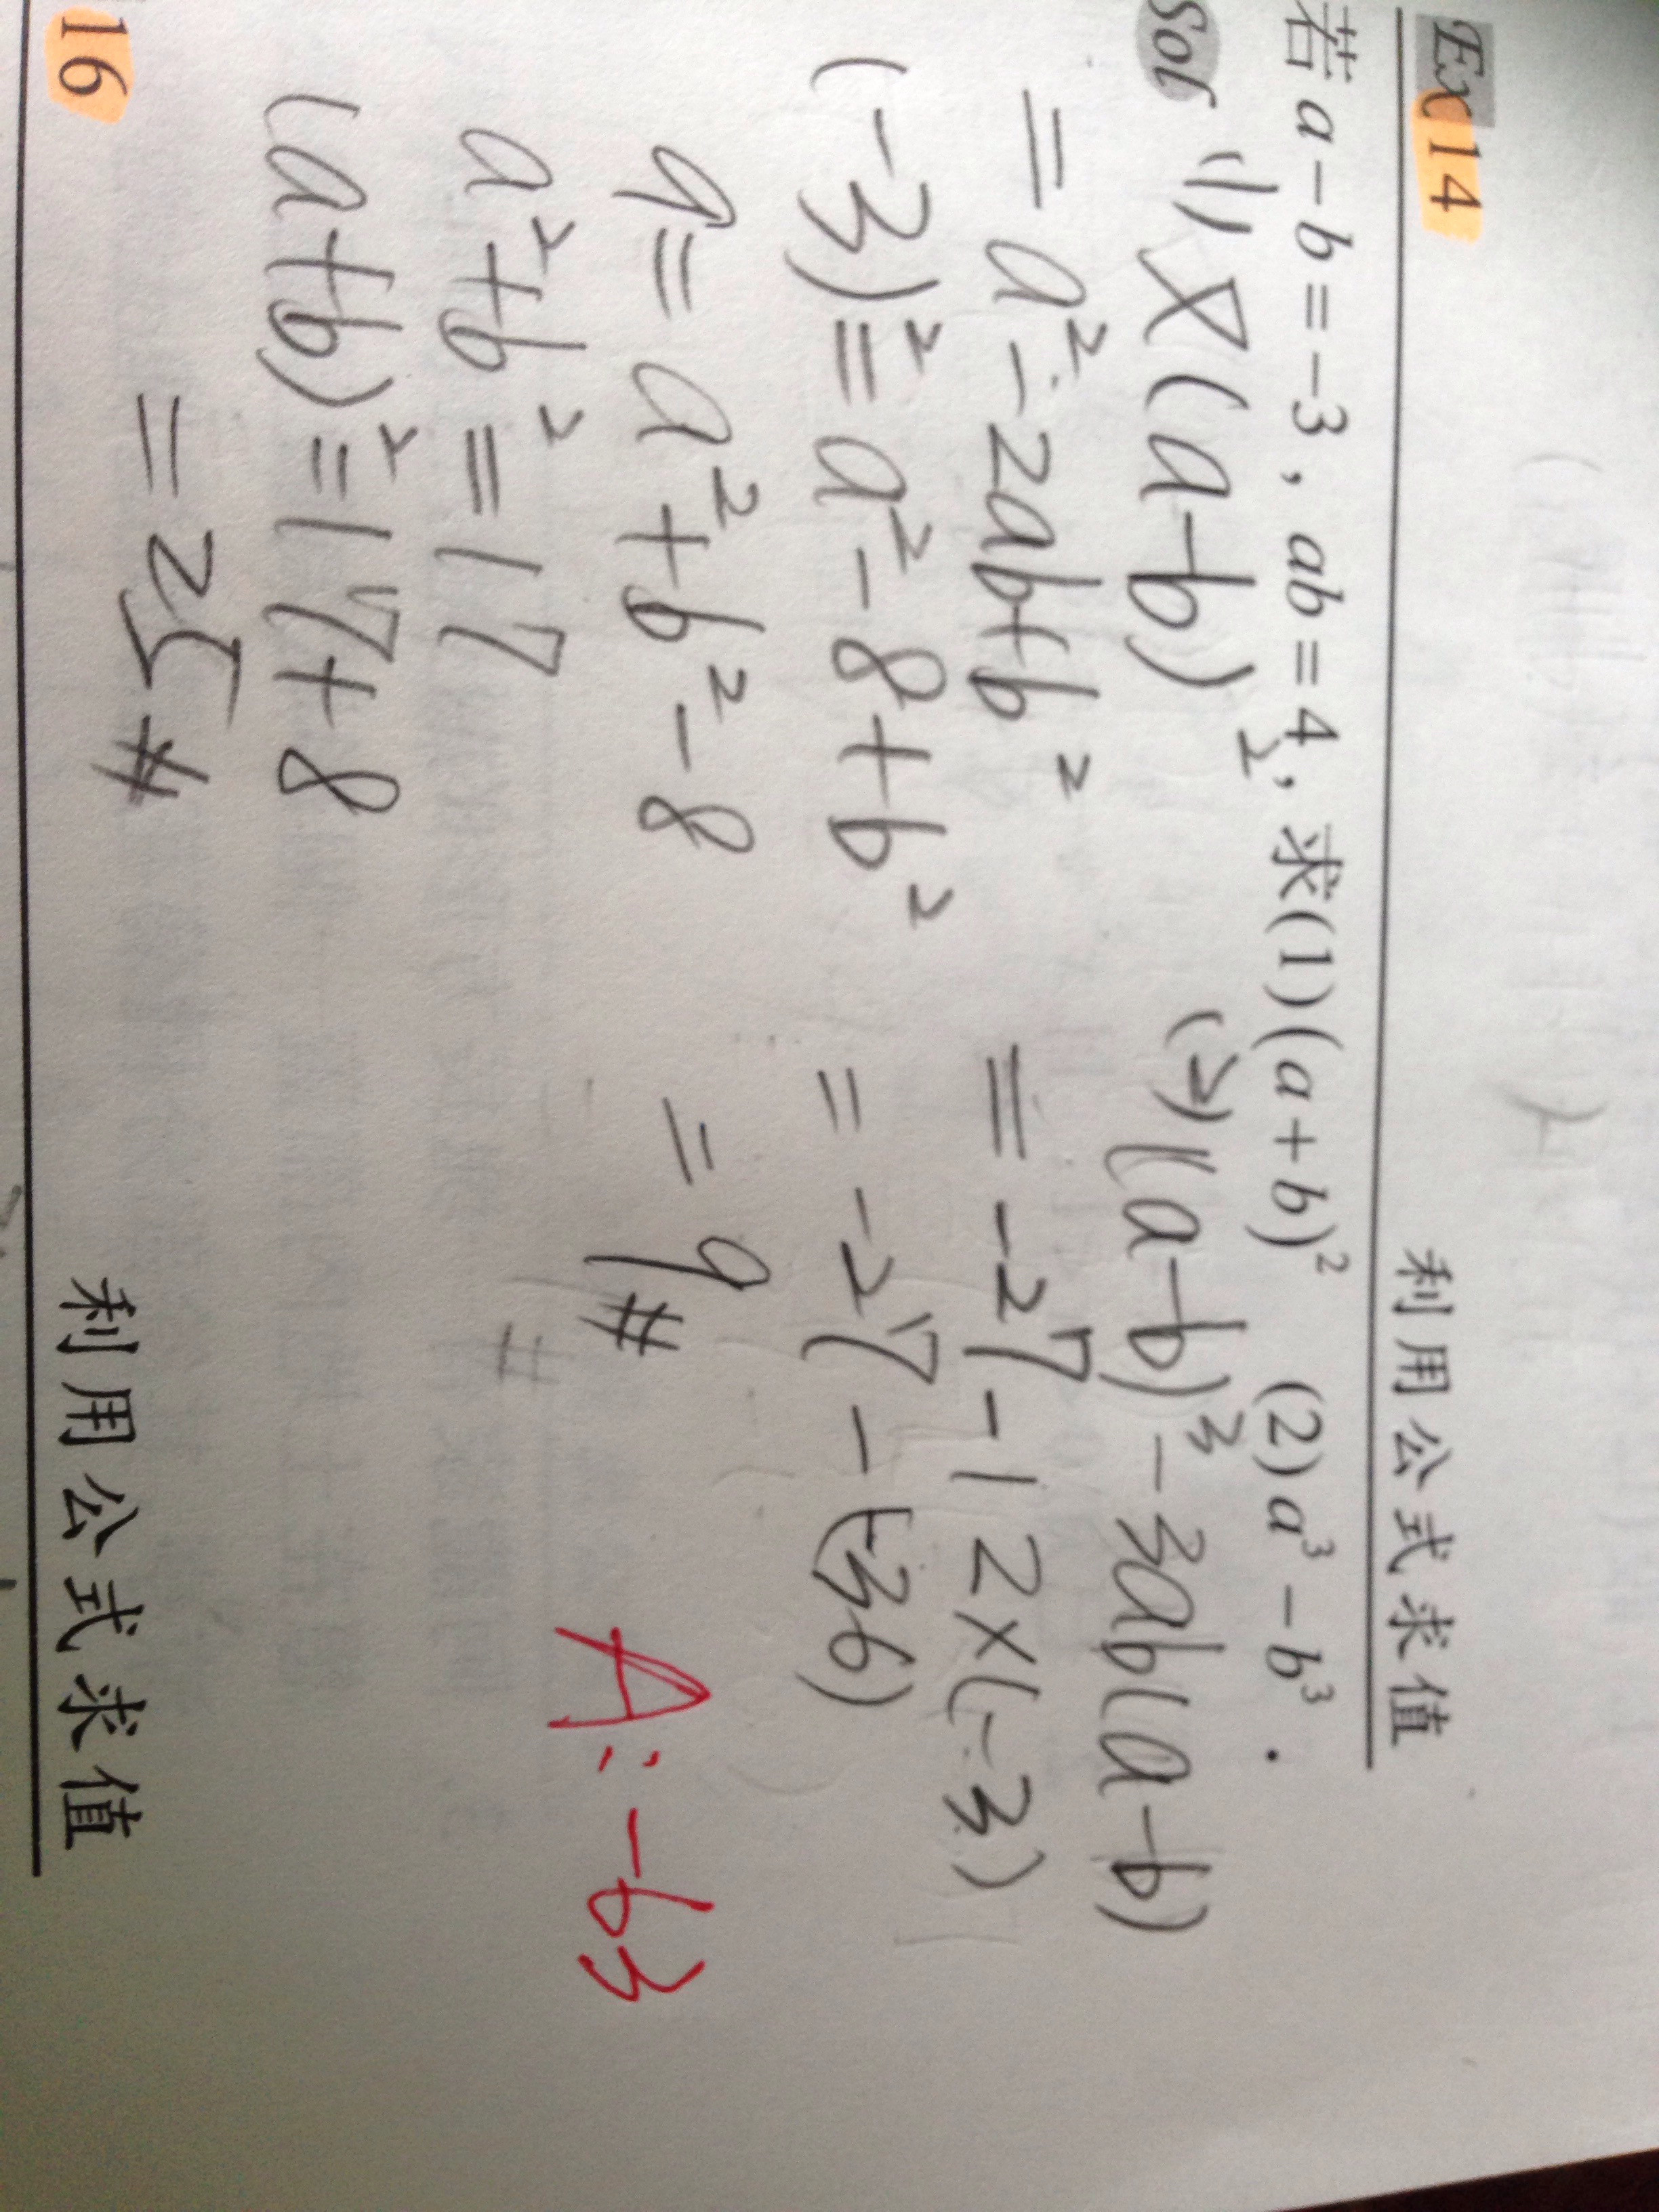 Ex 14
利用公式求值
若 a-b=-3，ab=4，求(1)(a+b)² (2)a³-b³．
Sol (1) (a-b)²
=a²-2ab+b²
(-3)²=a²-8+b²
9=a²+b²-8
a²+b²=17
(a+b)²=17+8
=25#
(2)(a-b)³-3ab(a-b)
=-27-12×(-3)
=-27-(-36)
=9#
A:-63
16
利用公式求值